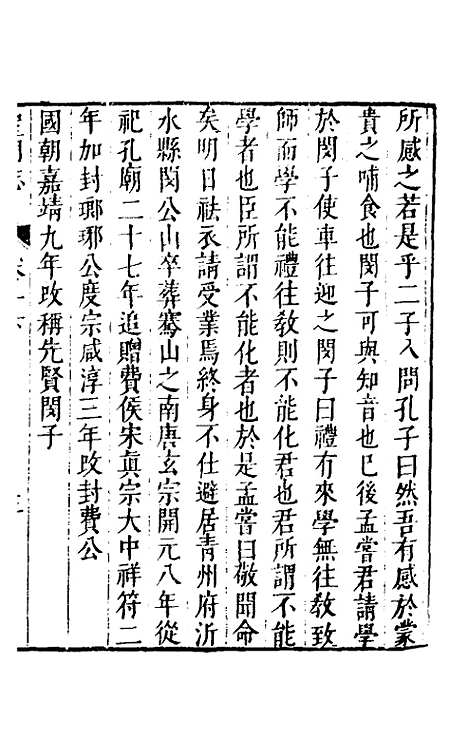 所感之若是乎二子入問孔子曰然吾有感於蒙
貴之哺食也閔子可與知音也已後孟嘗君請學
於閔子使車往迎之閔子曰禮有來學無往教致
師而學不能禮往教則不能化君也君所謂不能
學者也臣所謂不能化者也於是孟嘗曰敬聞命
矣明日袪衣請受業焉終身不仕避居青州府沂
水縣閔公山卒葬騫山之南唐玄宗開元八年從
祀孔廟二十七年追贈費侯宋真宗大中祥符二
年加封瑯琊公度宗咸淳三年改封費公
國朝嘉靖九年改稱先賢閔子